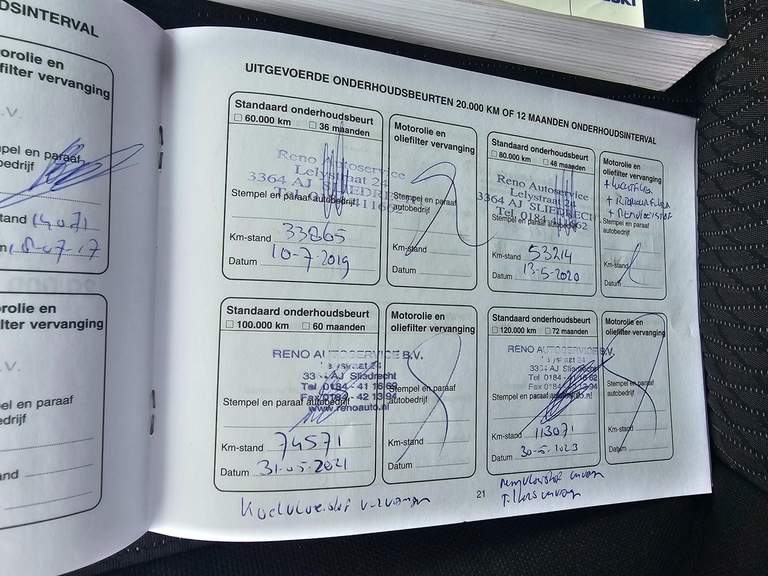 DSINTERVAL
otorolie en
filter vervanging
pel en paraaf
bedrijf
stand 14071
18-07-17
orolie en
lter vervanging
pel en paraaf
bedrijf
and
UITGEVOERDE ONDERHOUDSBEURTEN 20.000 KM OF 12 MAANDEN ONDERHOUDSINTERVAL
Standaard onderhoudsbeurt
☐ 60.000 km ☐ 36 maanden
Reno Autoservice
Lelystraat 24
3364 AJ SLIEDRECHT
Stempel en paraaf autobedrijf
Km-stand 33865
Datum 10-7-2019
Motorolie en
oliefilter vervanging
Stempel en paraaf
autobedrijf
Km-stand
Datum
Standaard onderhoudsbeurt
☐ 80.000 km ☐ 48 maanden
Reno Autoservice
Lelystraat 24
3364 AJ SLIEDRECHT
Tel. 0184-411662
Stempel en paraaf autobedrijf
Km-stand 53214
Datum 13-5-2020
Motorolie en
oliefilter vervanging
+ luchtfilter
+ Remvloeistof
Stempel en paraaf
autobedrijf
Km-stand
Datum
Standaard onderhoudsbeurt
☐ 100.000 km ☐ 60 maanden
RENO AUTOSERVICE B.V.
Lelystraat 24
3364 AJ Sliedrecht
Tel 0184 - 41 16 62
Fax 0184 - 42 13 94
www.renoauto.nl
Stempel en paraaf autobedrijf
Km-stand 74571
Datum 31-05-2021
Motorolie en
oliefilter vervanging
Stempel en paraaf
autobedrijf
Km-stand
Datum
Standaard onderhoudsbeurt
☐ 120.000 km ☐ 72 maanden
RENO AUTOSERVICE B.V.
3364 AJ Sliedrecht
Tel 0184 - 41 16 62
Stempel en paraaf autobedrijf
Km-stand 113071
Datum 30-5-2023
Motorolie en
oliefilter vervanging
Stempel en paraaf
autobedrijf
Km-stand
Datum
Koelvloeistof vervangen
21
remvloeistof